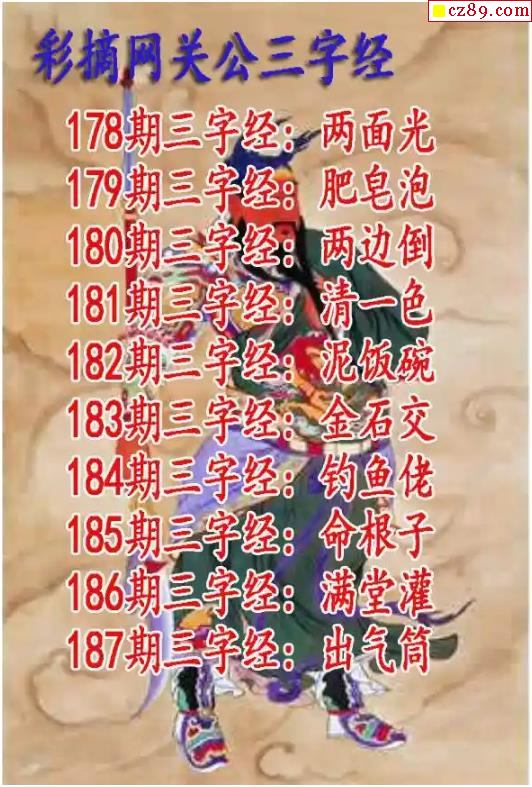 cz89.com
彩摘网关公三字经
178期三字经：两面光
179期三字经：肥皂泡
180期三字经：两边倒
181期三字经：清一色
182期三字经：泥饭碗
183期三字经：金石交
184期三字经：钓鱼佬
185期三字经：命根子
186期三字经：满堂灌
187期三字经：出气筒